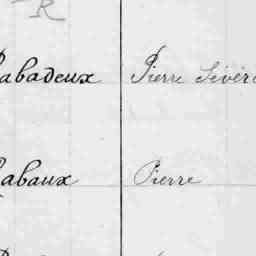 R
Rabadeux Pierre Sévér
Rabaux Pierre